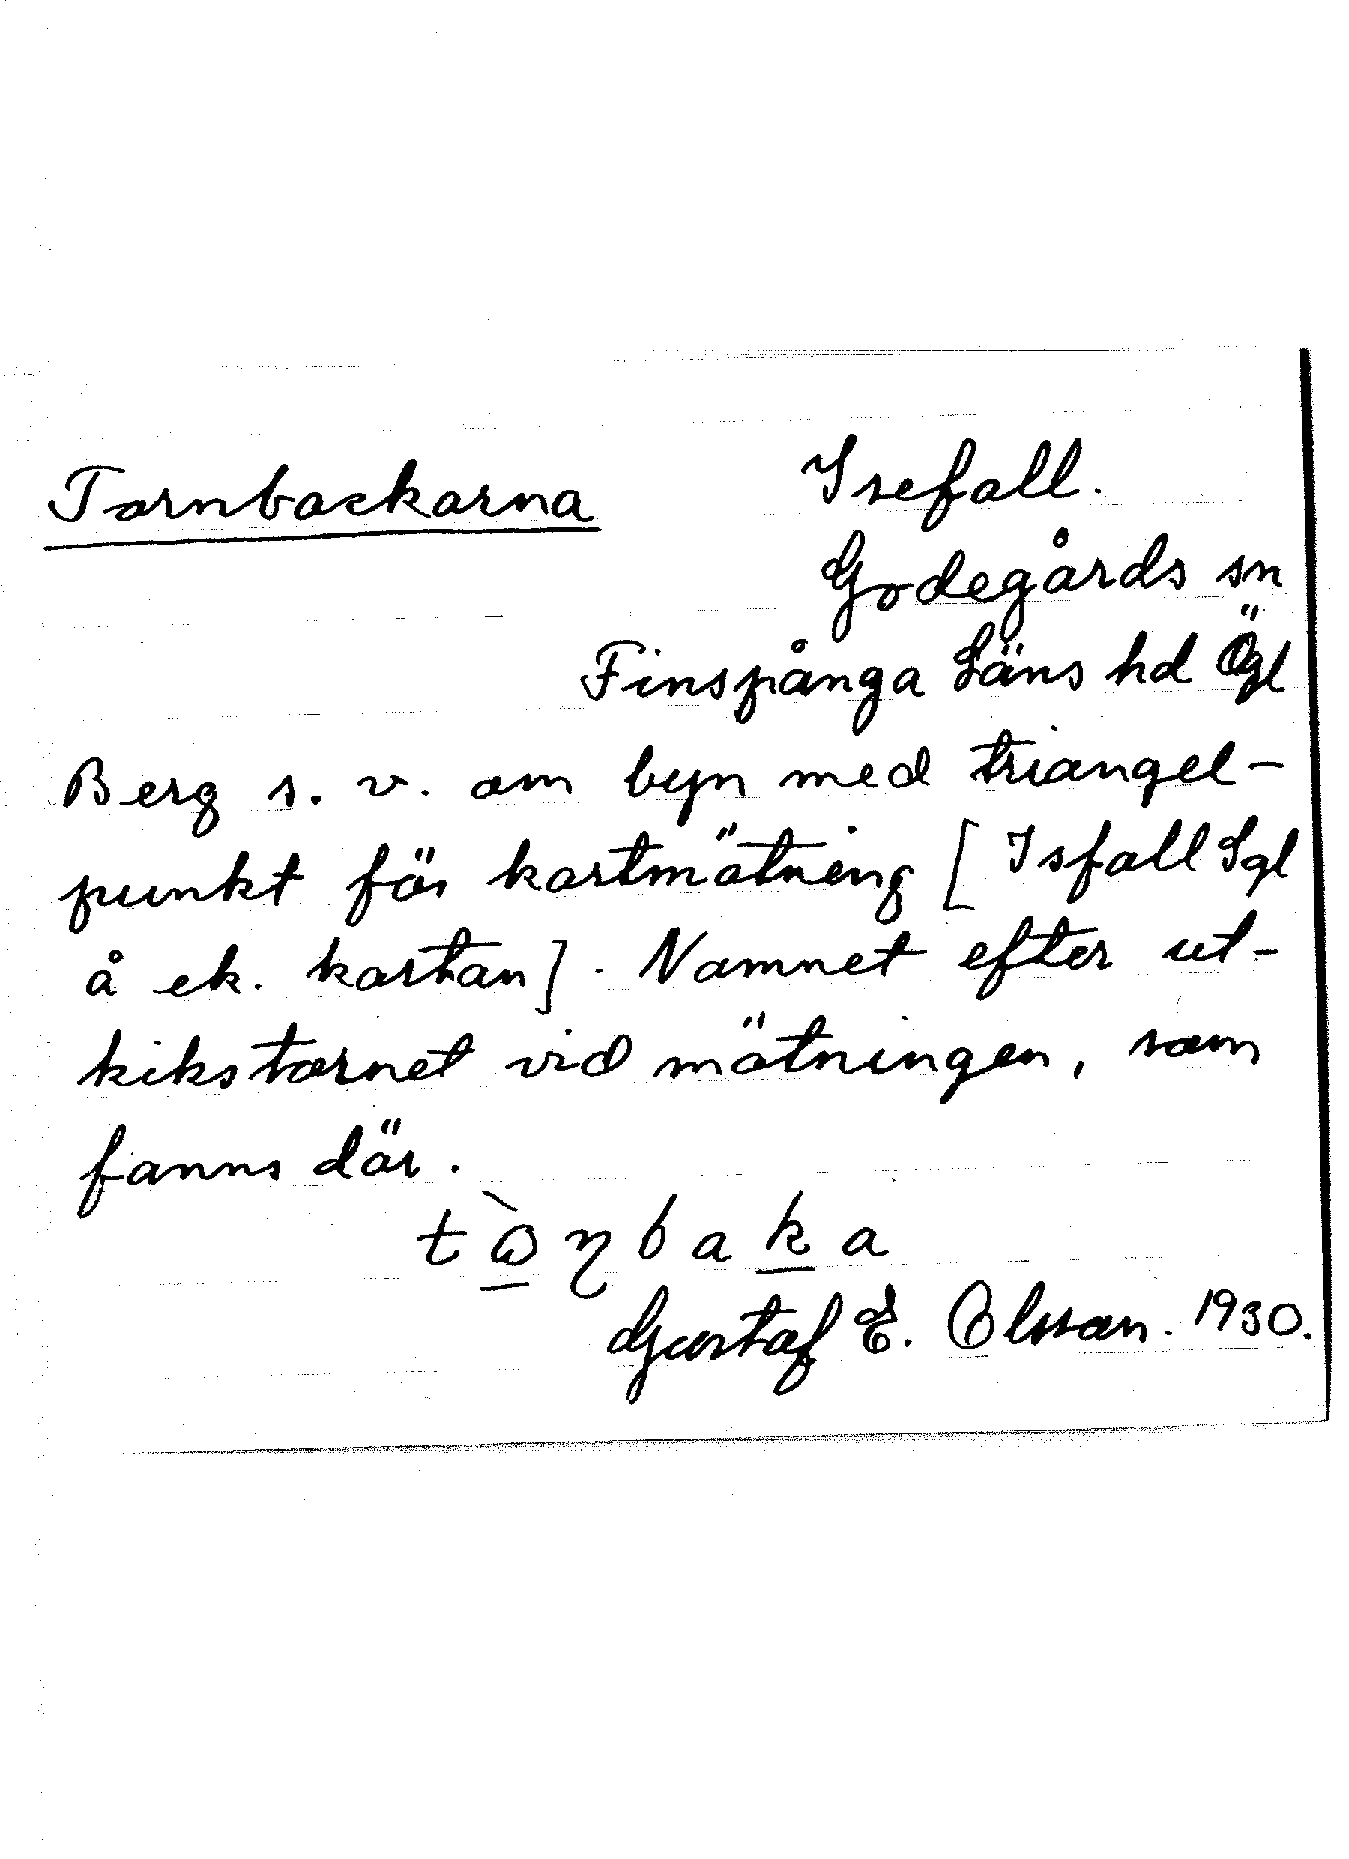 Tornbackarna
Isefall.
Godegårds sn
Finspånga Läns hd Ögl
Berg s. v. om byn med triangel-
punkt för kartmätning [Isfall Sgl
å ek. kartan]. Namnet efter ut-
kikstornet vid mätningen, som
fanns där.
Gustaf E. Olsson. 1930.